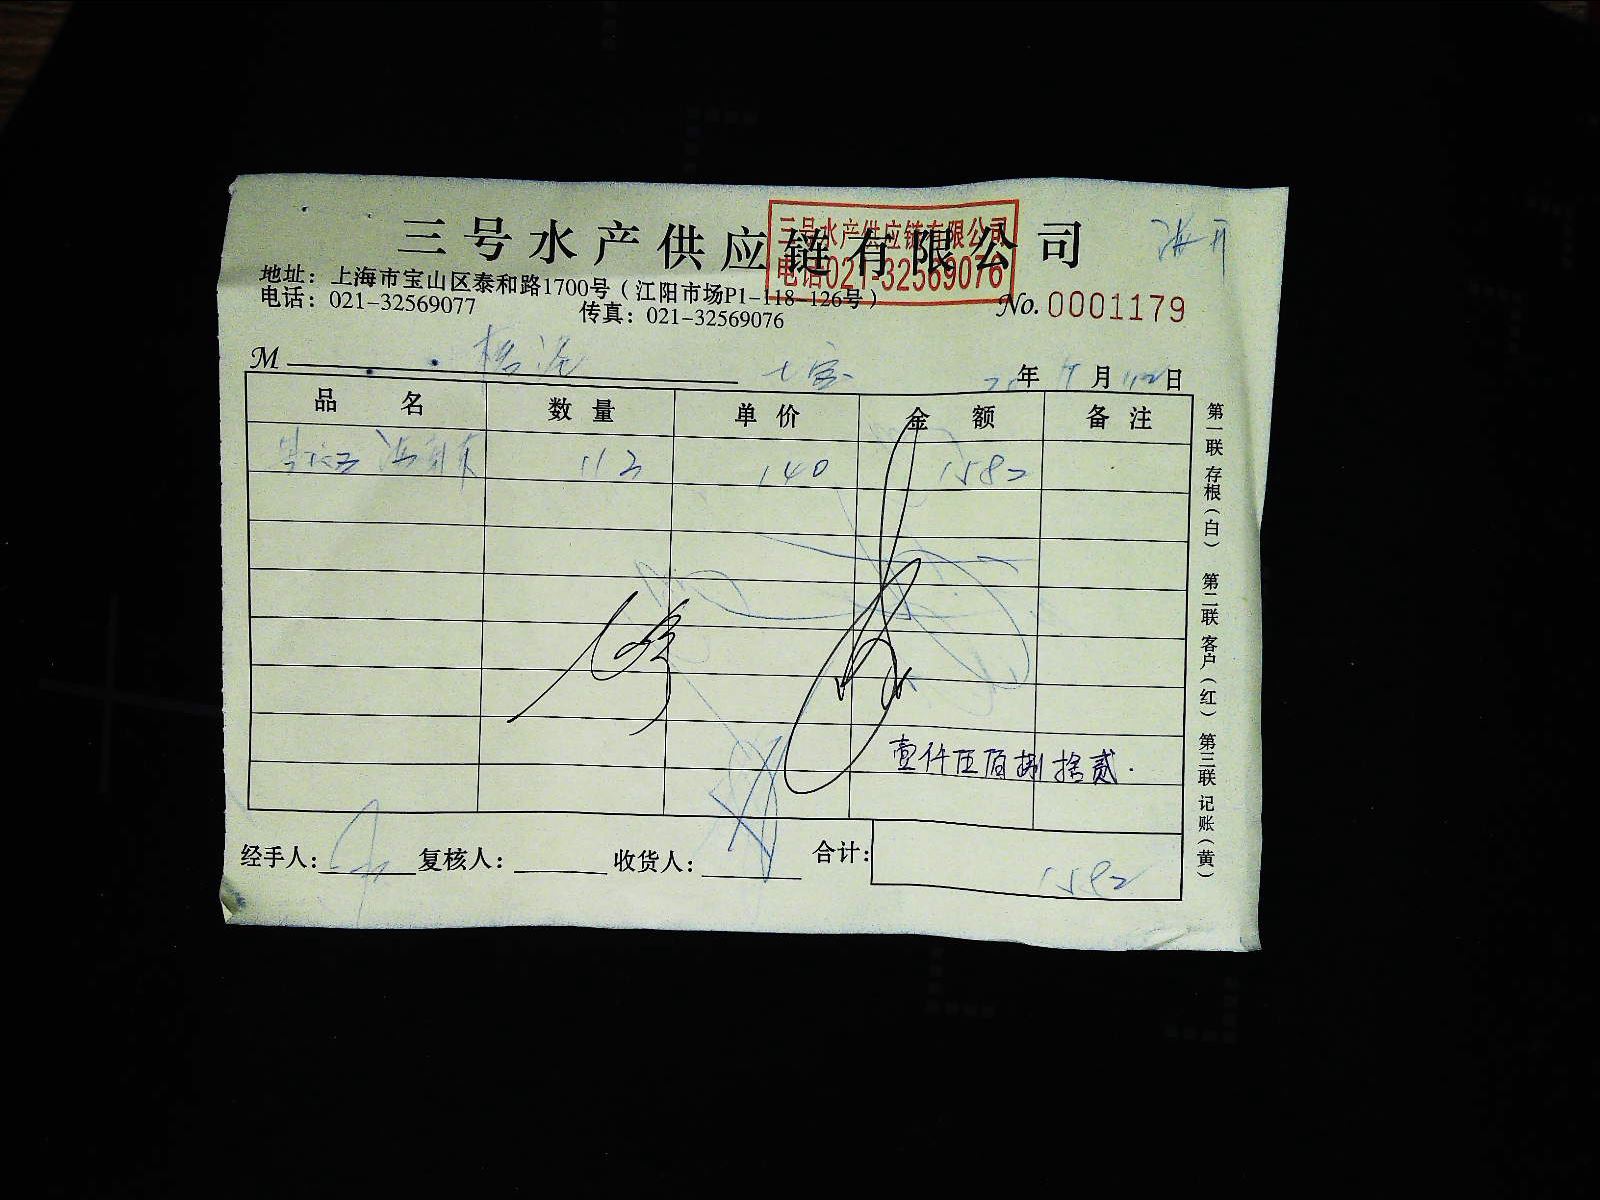 三号水产供应链有限公司
三号水产供应链有限公司
电话021-32569076
地址：上海市宝山区泰和路1700号（江阳市场P1-118-126号）
电话：021-32569077 传真：021-32569076
No.0001179
M 年 月 日
品名 数量 单价 金额 备注
113 140 1582
壹仟伍佰捌拾贰.
经手人： 复核人： 收货人： 合计： 1582
第一联 存根（白） 第二联 客户（红） 第三联 记账（黄）